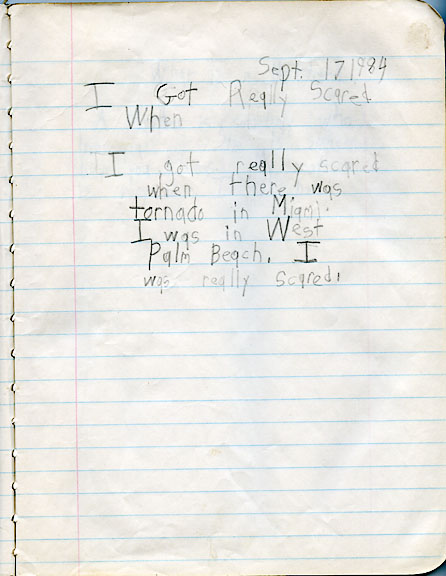 Sept. 17 1984
I Got Really Scared
When
I got really scared
when there was
tornado in Miami.
I was in West
Palm Beach. I
was really scared.